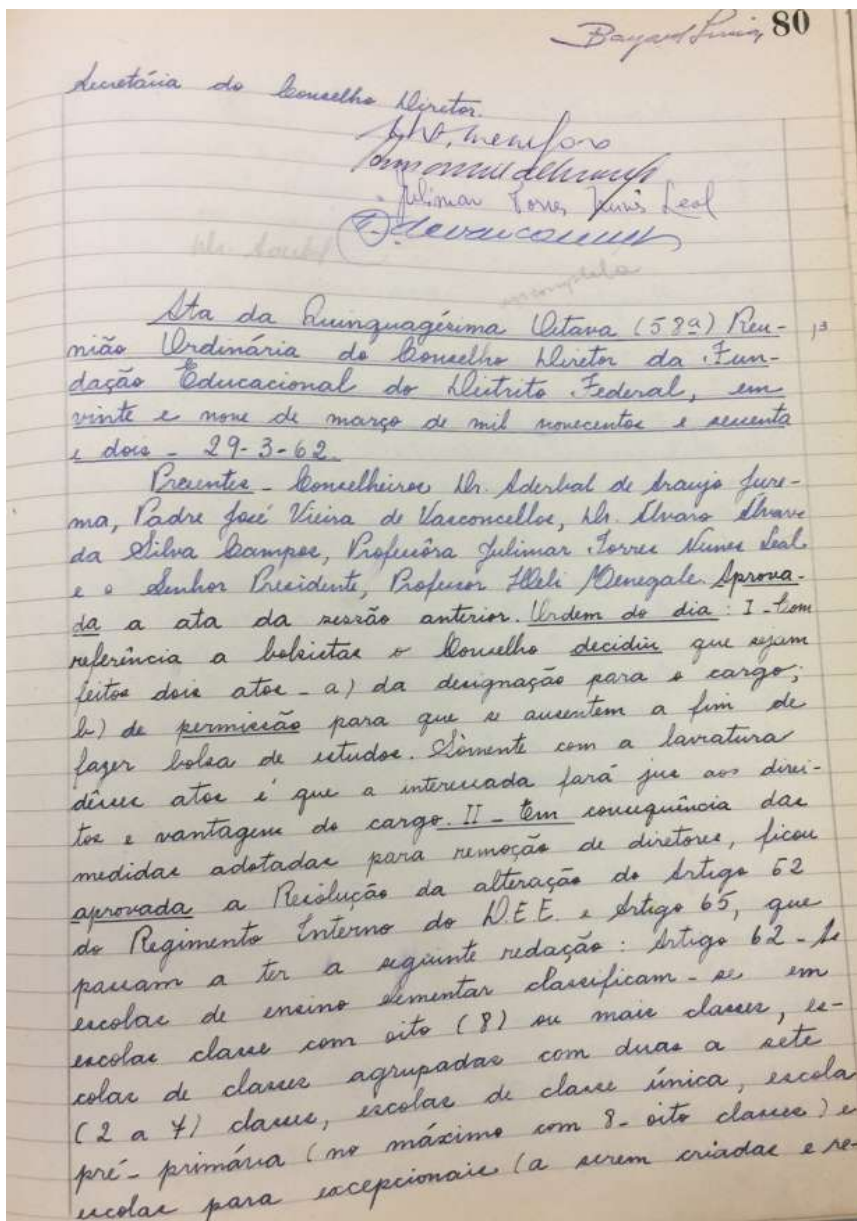 80
Secretária do Conselho Diretor.
Julimar Torres Nunes Leal
incompleta
Ata da Quinquagésima Oitava (58ª) Reu-
nião Ordinária do Conselho Diretor da Fun-
dação Educacional do Distrito Federal, em
vinte e nove de março de mil novecentos e sessenta
e dois - 29-3-62.
Presentes - Conselheiros Dr. Aderbal de Araujo Jure-
ma, Padre José Vieira de Vasconcellos, Dr. Alvaro Alvares
da Silva Campos, Professôra Julimar Torres Nunes Leal
e o Senhor Presidente, Professor Heli Menegale. Aprova-
da a ata da sessão anterior. Ordem do dia: I - Com
referência a bolsistas o Conselho decidiu que sejam
feitos dois atos - a) da designação para o cargo;
b) de permissão para que se ausentem a fim de
fazer bolsa de estudos. Sòmente com a lavratura
dêsses atos é que a interessada fará jus aos direi-
tos e vantagens do cargo. II - Em consequência das
medidas adotadas para remoção de diretores, ficou
aprovada a Resolução da alteração do Artigo 62
do Regimento Interno do D.E.E. e Artigo 65, que
passam a ter a seguinte redação: Artigo 62 - As
escolas de ensino elementar classificam-se em
escolas classe com oito (8) ou mais classes, es-
colas de classes agrupadas com duas a sete
(2 a 7) classes, escolas de classe única, escola
pré-primária (no máximo com 8-oito classes) e
escolas para excepcionais (a serem criadas e re-